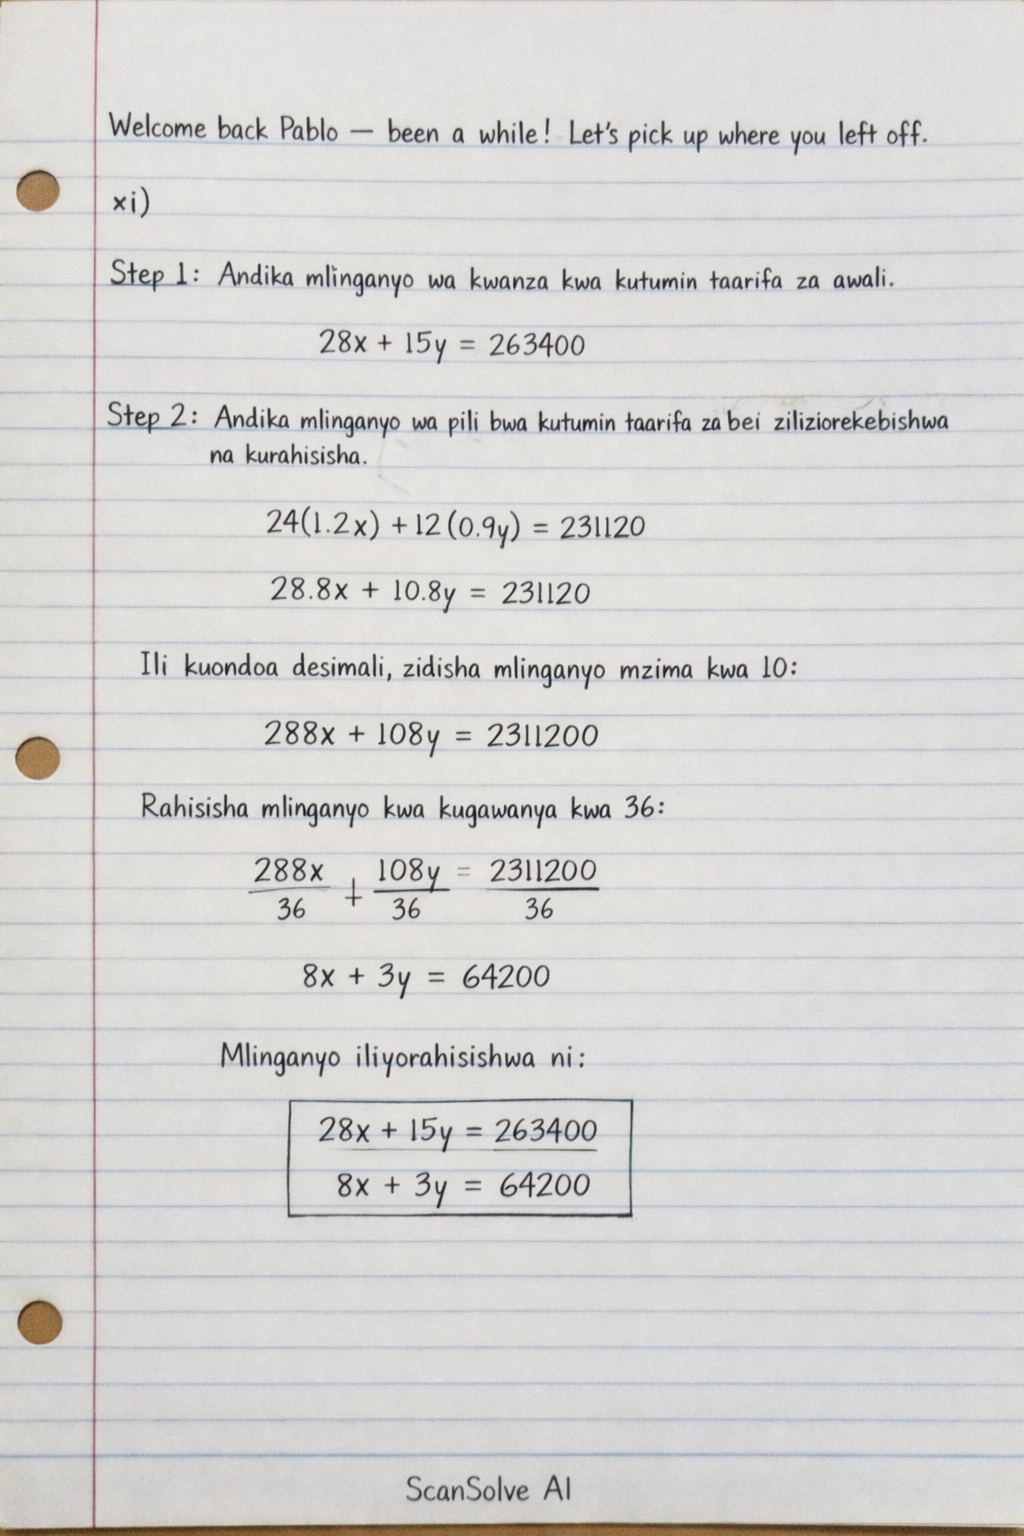 Welcome back Pablo — been a while! Let's pick up where you left off.
xi)
Step 1: Andika mlinganyo wa kwanza kwa kutumin taarifa za awali.
28x + 15y = 263400
Step 2: Andika mlinganyo wa pili bwa kutumin taarifa za bei ziliziorekebishwa
na kurahisisha.
24(1.2x) + 12(0.9y) = 231120
28.8x + 10.8y = 231120
Ili kuondoa desimali, zidisha mlinganyo mzima kwa 10:
288x + 108y = 2311200
Rahisisha mlinganyo kwa kugawanya kwa 36:
288x/36 + 108y/36 = 2311200/36
8x + 3y = 64200
Mlinganyo iliyorahisishwa ni:
28x + 15y = 263400
8x + 3y = 64200
ScanSolve AI